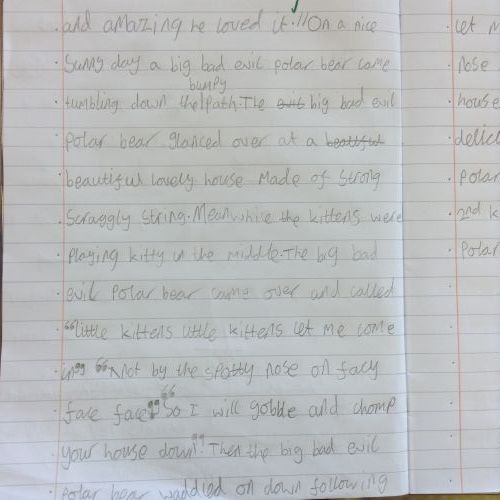 and amazing he loved it.// On a nice
Sunny day a big bad evil polar bear came
bumpy
tumbling down the path. The evil big bad evil
Polar bear glanced over at a beatiful
beautiful lovely house Made of Strong
Scraggly String. Meanwhile the kittens were
Playing kitty in the middle. The big bad
evil Polar bear came over and called
"little kittens little kittens let me come
in" "Not by the spotty nose on
face face" "So I will gobble and chomp
your house down". Then the big bad evil
Polar bear waddled on down following
let
nose
house
Polar
2nd
Polar